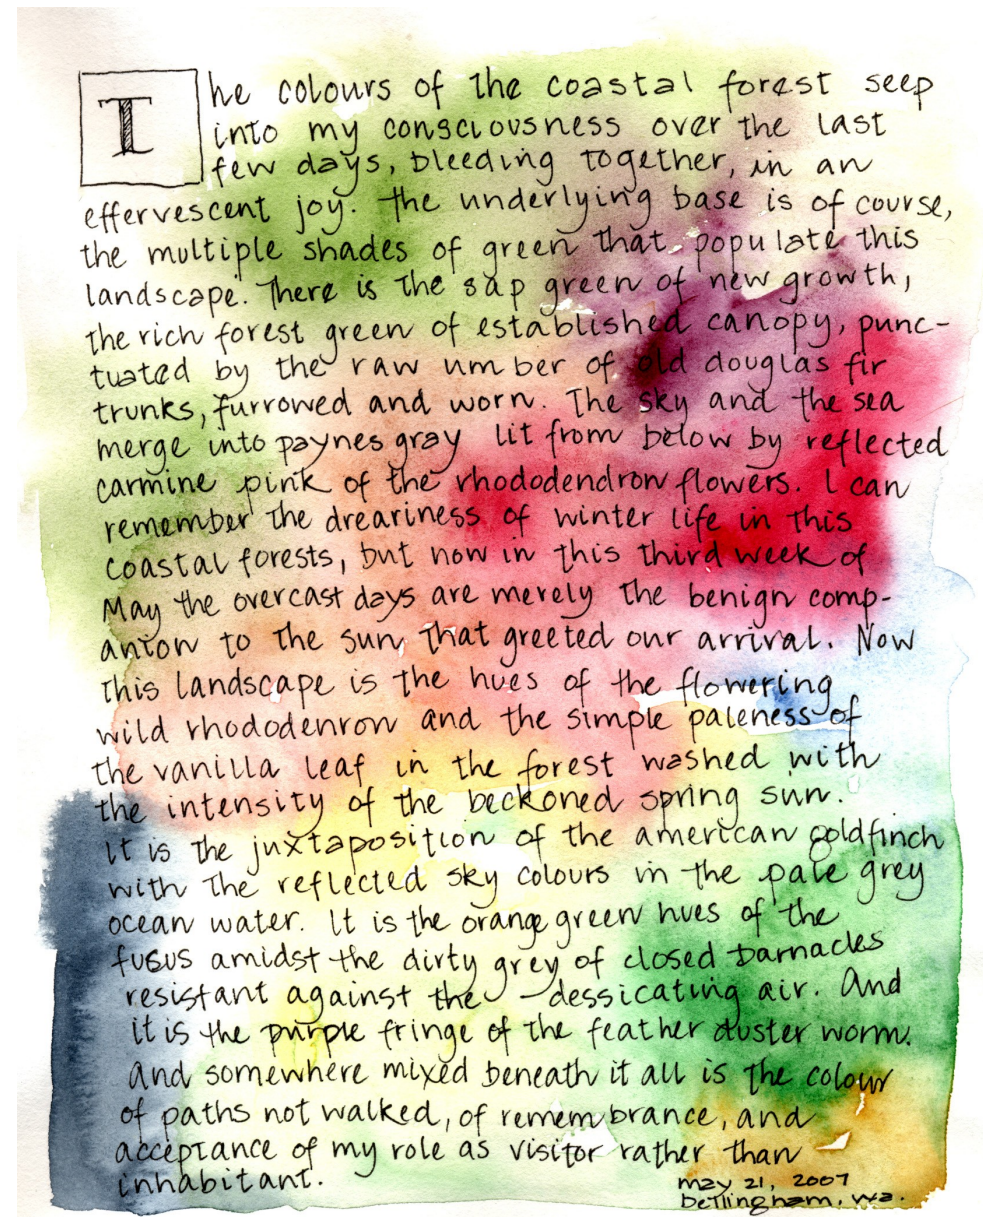 The colours of the coastal forest seep
into my consciousness over the last
few days, bleeding together, in an
effervescent joy. The underlying base is of course,
the multiple shades of green that populate this
landscape. There is the sap green of new growth,
the rich forest green of established canopy, punc-
tuated by the raw umber of old douglas fir
trunks, furrowed and worn. The sky and the sea
merge into paynes gray lit from below by reflected
carmine pink of the rhododendron flowers. I can
remember the dreariness of winter life in this
coastal forests, but now in this third week of
May the overcast days are merely the benign comp-
anion to the sun that greeted our arrival. Now
this landscape is the hues of the flowering
wild rhododenron and the simple paleness of
the vanilla leaf in the forest washed with
the intensity of the beckoned spring sun.
It is the juxtaposition of the american goldfinch
with the reflected sky colours in the pale grey
ocean water. It is the orange green hues of the
fusus amidst the dirty grey of closed barnacles
resistant against the dessicating air. And
it is the purple fringe of the feather duster worm.
And somewhere mixed beneath it all is the colour
of paths not walked, of remembrance, and
acceptance of my role as visitor rather than
inhabitant.
may 21, 2007
bellingham, wa.